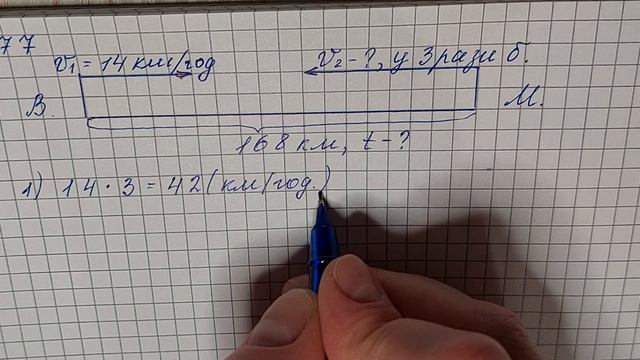 77
v₁ = 14 км/год v₂ - ?, у 3 рази б.
В. М.
168 км, t - ?
1) 14 · 3 = 42 (км/год.)